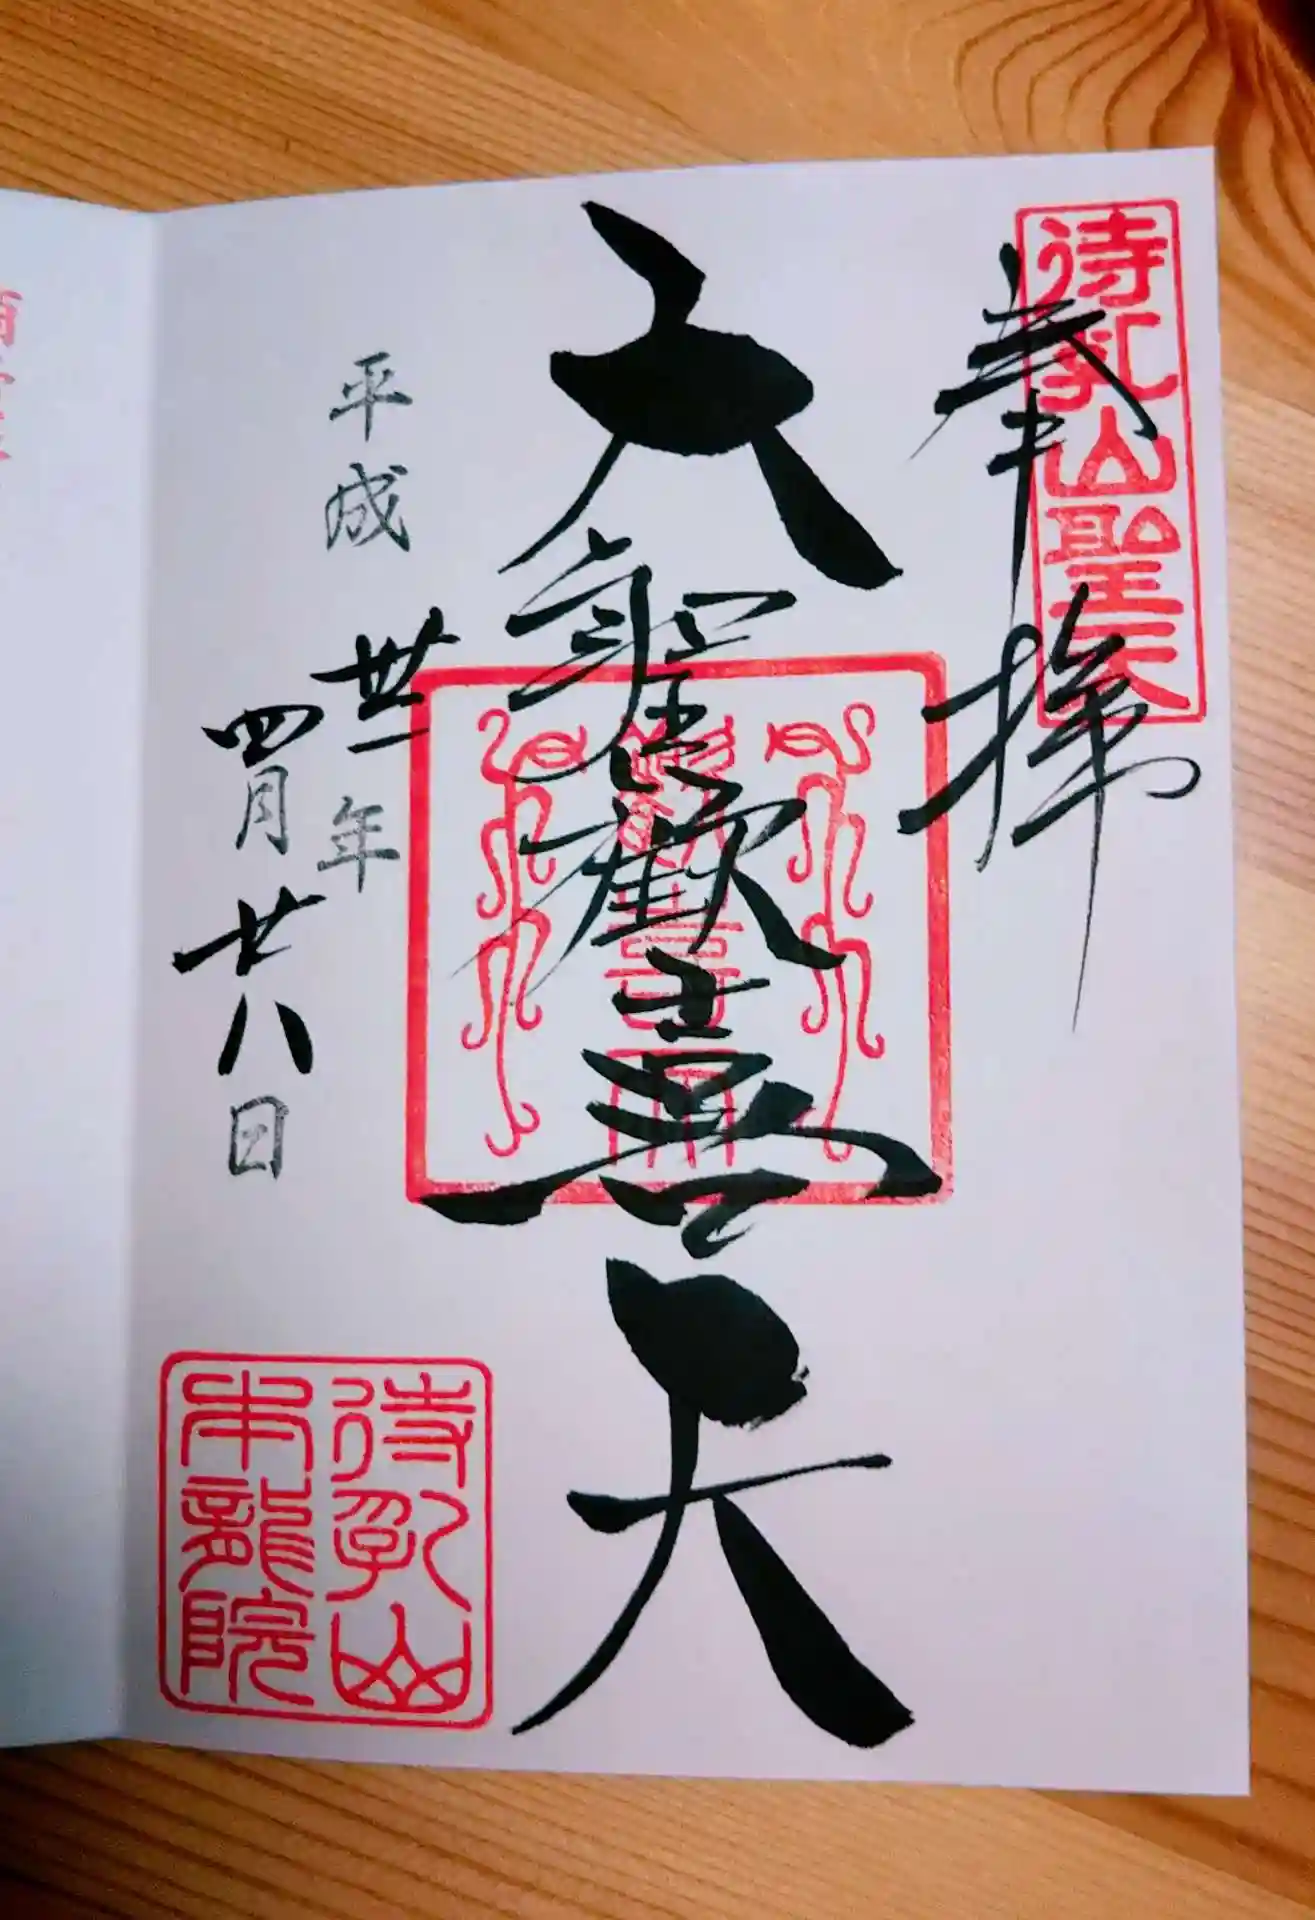 待乳山聖天
奉拝
大聖歓喜天
平成
卅一年
四月廿八日
待乳山
本龍院